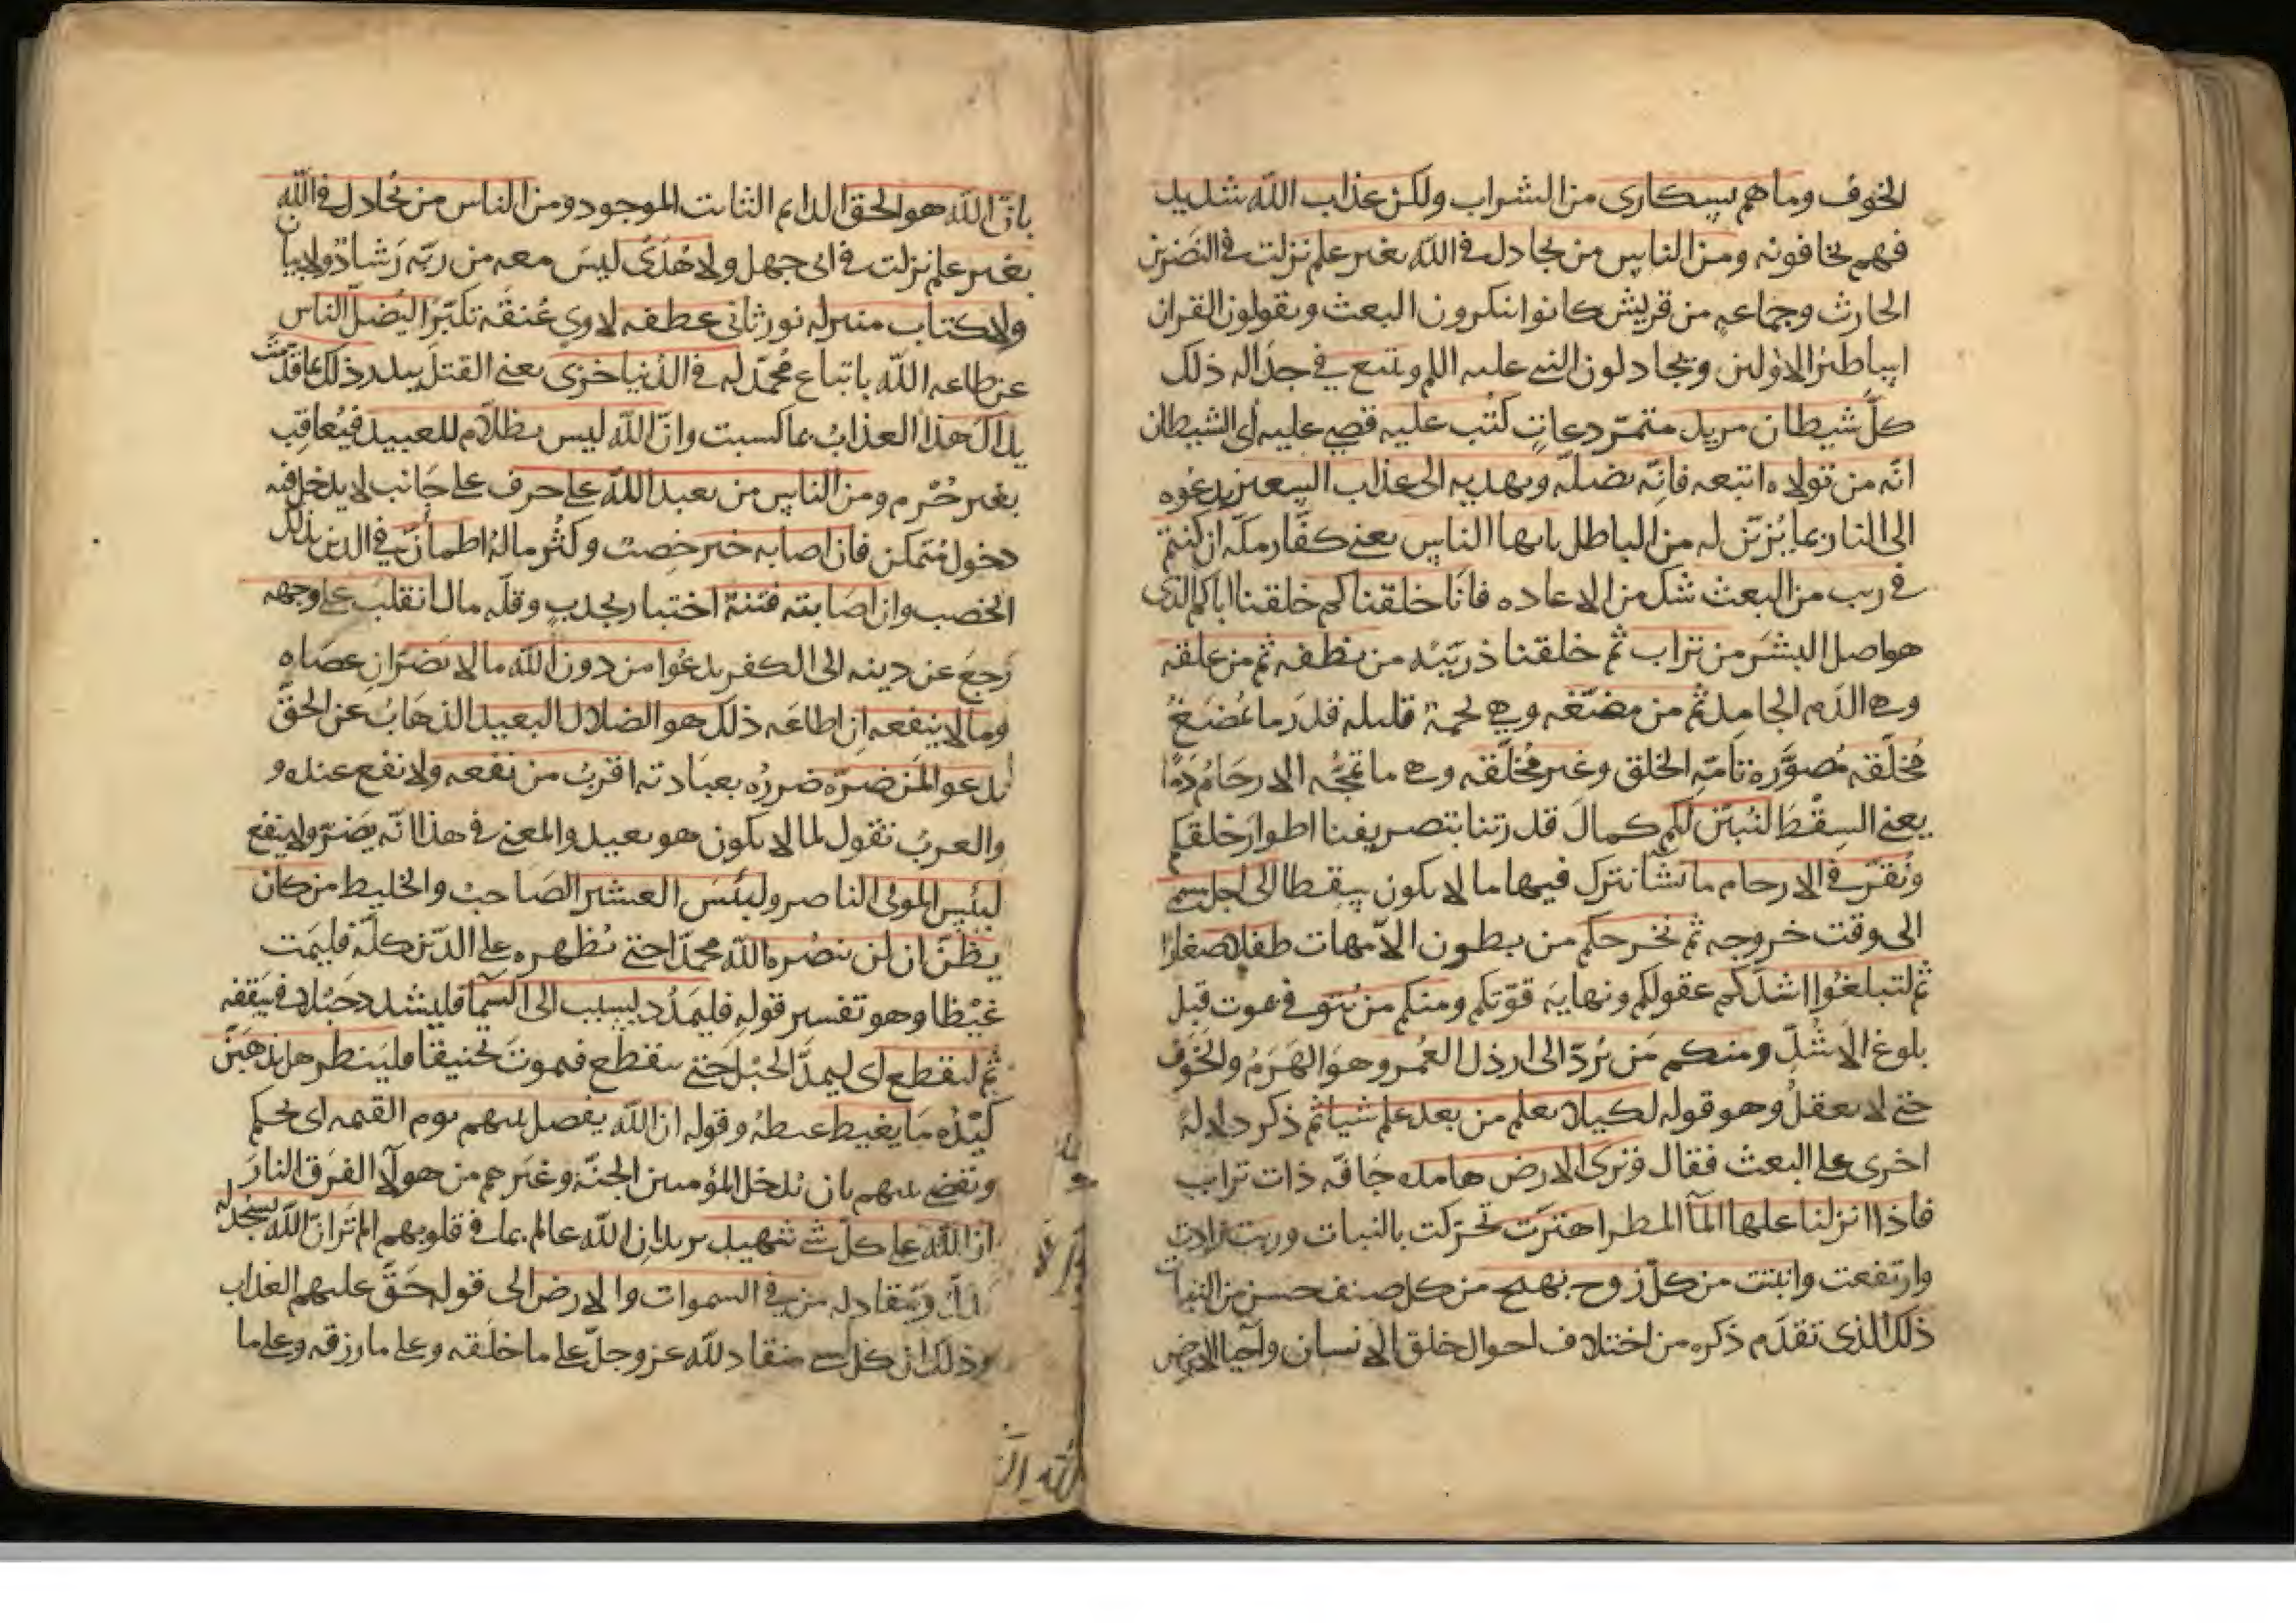 الخوف وما هم بسكارى من الشراب ولكن عذاب الله شديد
فهم يخافونه ومن الناس من يجادل في الله بغير علم نزلت في النضر بن
الحارث وجماعه من قريش كانوا ينكرون البعث ويقولون القران
اساطير الاولين ويجادلون النبي عليه السلم ويتبع في جداله ذلك
كل شيطان مريد متمرد عات كُتب عليه قضي عليه أي الشيطان
انه من تولاه اتبعه فانه يضله ويهديه الى عذاب السعير يدعوه
الى النار بما يُزيّن له من الباطل يايها الناس يعني كفار مكه ان كنتم
في ريب من البعث شك من الاعاده فانا خلقناكم خلقنا اباكم الذي
هو اصل البشر من تراب ثم خلقنا ذريّته من نطفه ثم من علقه
وهي الدم الجامد ثم من مضغه وهي لحمة قليله قدر ما يُمضغ
مُخلّقه مُصوّره تامّه الخلق وغير مُخلّقه وهي ما تمجّه الارحام دمًا
يعني السِقْط لنُبيّن لكم كمال قدرتنا بتصريفنا اطوار خلقكم
ونُقرّ في الارحام ما نشآ نترك فيها ما لا يكون سقطا الى اجل مسمى
الى وقت خروجه ثم نخرجكم من بطون الامّهات طفلا صغارًا
ثم لتبلغُوا اشدّكم عقولكم ونهاية قوّتكم ومنكم من يُتوفى يموت قبل
بلوغ الاشُدّ ومنكم من يُردّ الى ارذل العُمر وهو الهَرَمُ والخَرَف
حتى لا يعقل وهو قوله لكيلا يعلم من بعد علم شيا ثم ذكر دلالة
اخرى على البعث فقال وترى الارض هامده جَافّه ذات تراب
فاذا انزلنا عليها المآ المطر اهتزّت تحرّكت بالنبات وربت زادت
وارتفعت وانبتت من كل زوج بهيج من كل صنف حسن من النبات
ذلك الذي تقدّم ذكره من اختلاف احوال خلق الانسان واحيا الارض
بانّ الله هو الحق الدايم الثابت الموجود ومن الناس من يُجادل في الله
بغير علم نزلت في ابي جهل ولا هُدًى ليس معه من ربّه رَشادٌ ولا بيان
ولا كتاب منير له نور ثاني عطفه لاوي عُنقه تكبّرا ليُضلّ الناس
عن طاعه الله باتباع مُحمّد له في الدُنيا خزي يعني القتل ببدر ذلك بما قدّمت
يداك هذا العذابُ بما كسبت وانّ الله ليس بظلّام للعبيد فيُعاقِب
بغير جُرْم ومن الناس من يعبد الله على حرف على جَانب لا يدخل فيه
دخول مُتمكن فان اصابه خير خِصبٌ وكثُر مالهُ اطمأنّ في الدين بذلك
الخصب وان اصَابته فتنة اختبار بجدبٍ وقلّه مال انقلبَ على وجهه
رَجع عن دينه الى الكفر يدعُوا من دون الله ما لا يضرّ ان عصَاه
وما لا ينفعه ان اطاعَه ذلك هو الضلال البعيد الذهابُ عن الحقّ
يدعوا لمن ضرّه ضررُه بعبَادته اقربُ من نفعه ولا نفع عنده و
والعربُ تقول لما لا يكون هو بعيد والمعنى في هذا انّه يضرّ ولا ينفع
لبئس المولى الناصر ولبئسَ العشير الصَاحبُ والخليط من كان
يظنّ ان لن ينصُره الله محمدًا حتى يُظهره على الدّين كلّه فليمت
غيْظا وهو تفسير قوله فليمدُد بسبب الى السمآ فليشدد حَبْلا في سَقفه
ثم ليقطع اي ليمدّ الحبْل حتى ينقطع فيموت تخنيقا فلينظر هل يذهبنّ
كيْدُه مَا يغيظ غيظهُ وقوله ان الله يفصل بينهم يوم القيمه اي يحكم
ويقضي بينهم بان يُدخل المؤمنين الجنّة وغيرهم من هولآ الفِرق النارَ
ان الله على كلّ شي شهيد يريد ان الله عالم بما في قلوبهم الم تر انّ الله يسجد له
يذلّ وينقاد له من في السموات والارض الى قوله حَقّ عليهم العذاب
وذلك ان كل شي منقاد لله عز وجلّ على ما خلَقه وعلى ما رزقه وعلى ما